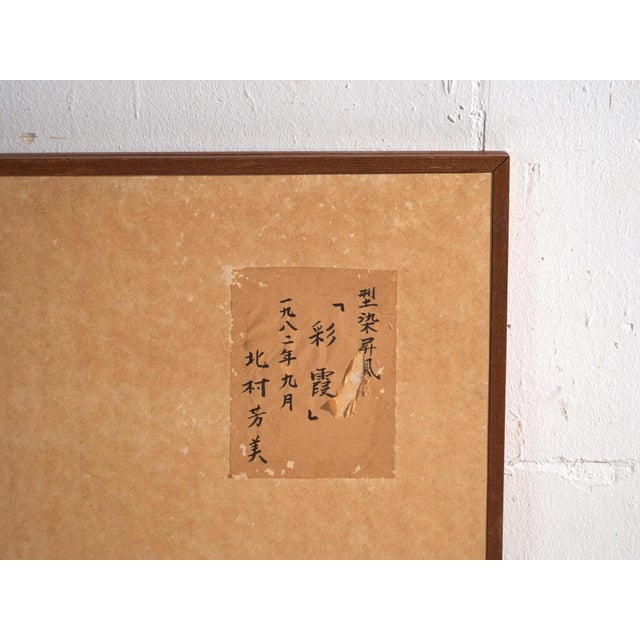 型染屏風
「彩霞」
一九八二年九月
北村芳美